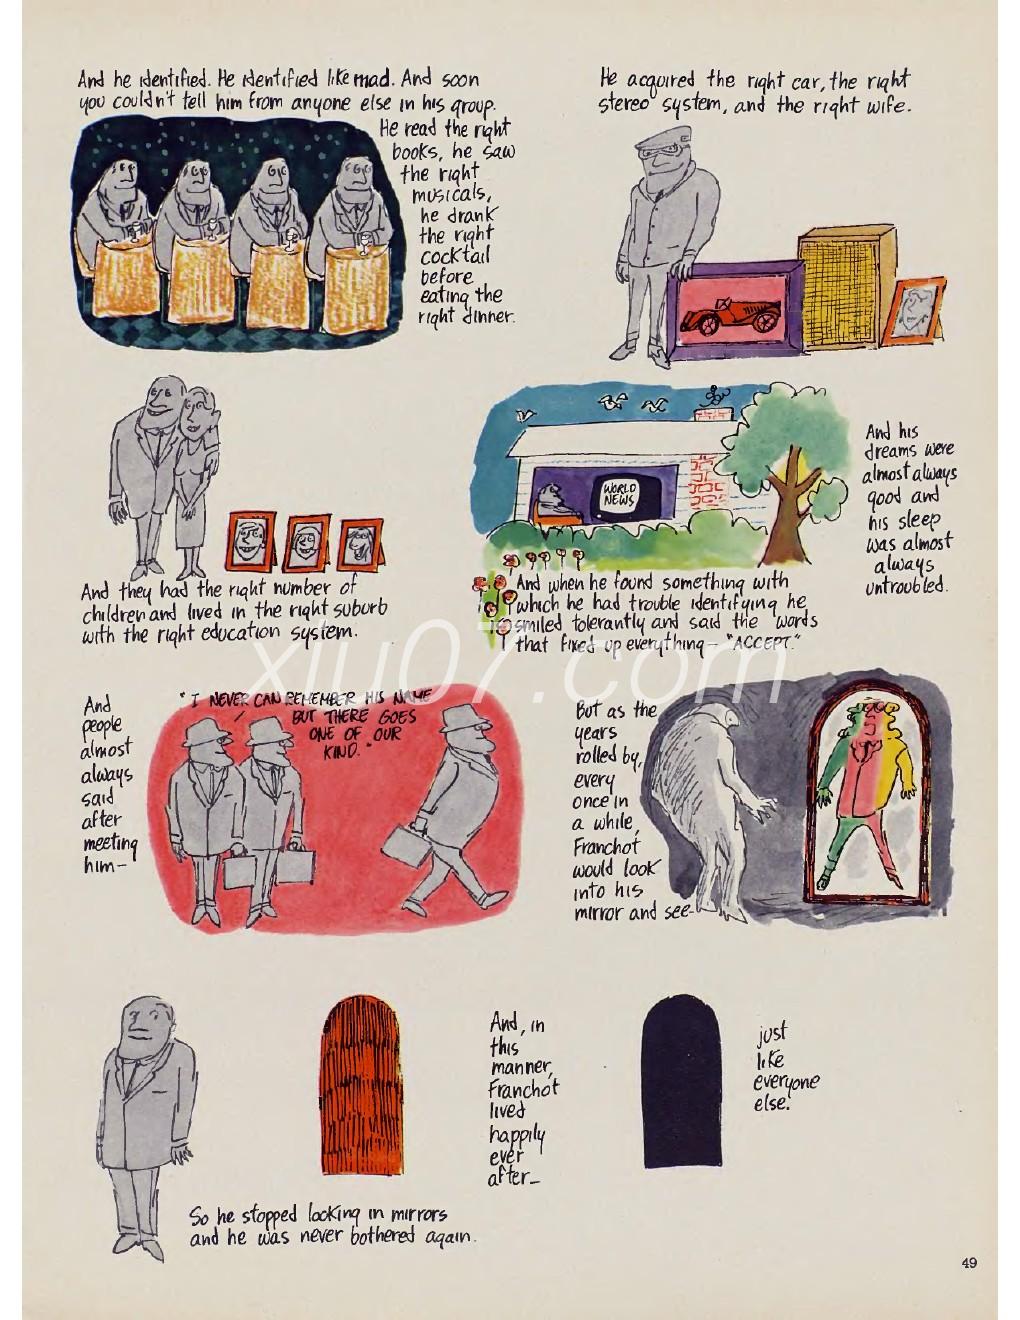 And he identified. He identified like mad. And soon
you couldn't tell him from anyone else in his group.
He read the right
books, he saw
the right
musicals,
he drank
the right
cocktail
before
eating the
right dinner.
He acquired the right car, the right
stereo system, and the right wife.
And they had the right number of
children and lived in the right suburb
with the right education system.
WORLD
NEWS
And when he found something with
which he had trouble identifying he
smiled tolerantly and said the words
that fixed up everything— "ACCEPT."
And his
dreams were
almost always
good and
his sleep
was almost
always
untroubled.
xiu07.com
And
people
almost
always
said
after
meeting
him—
"I NEVER CAN REMEMBER HIS NAME
BUT THERE GOES
ONE OF OUR
KIND."
But as the
years
rolled by,
every
once in
a while,
Franchot
would look
into his
mirror and see—
So he stopped looking in mirrors
and he was never bothered again.
And, in
this
manner,
Franchot
lived
happily
ever
after—
just
like
everyone
else.
49